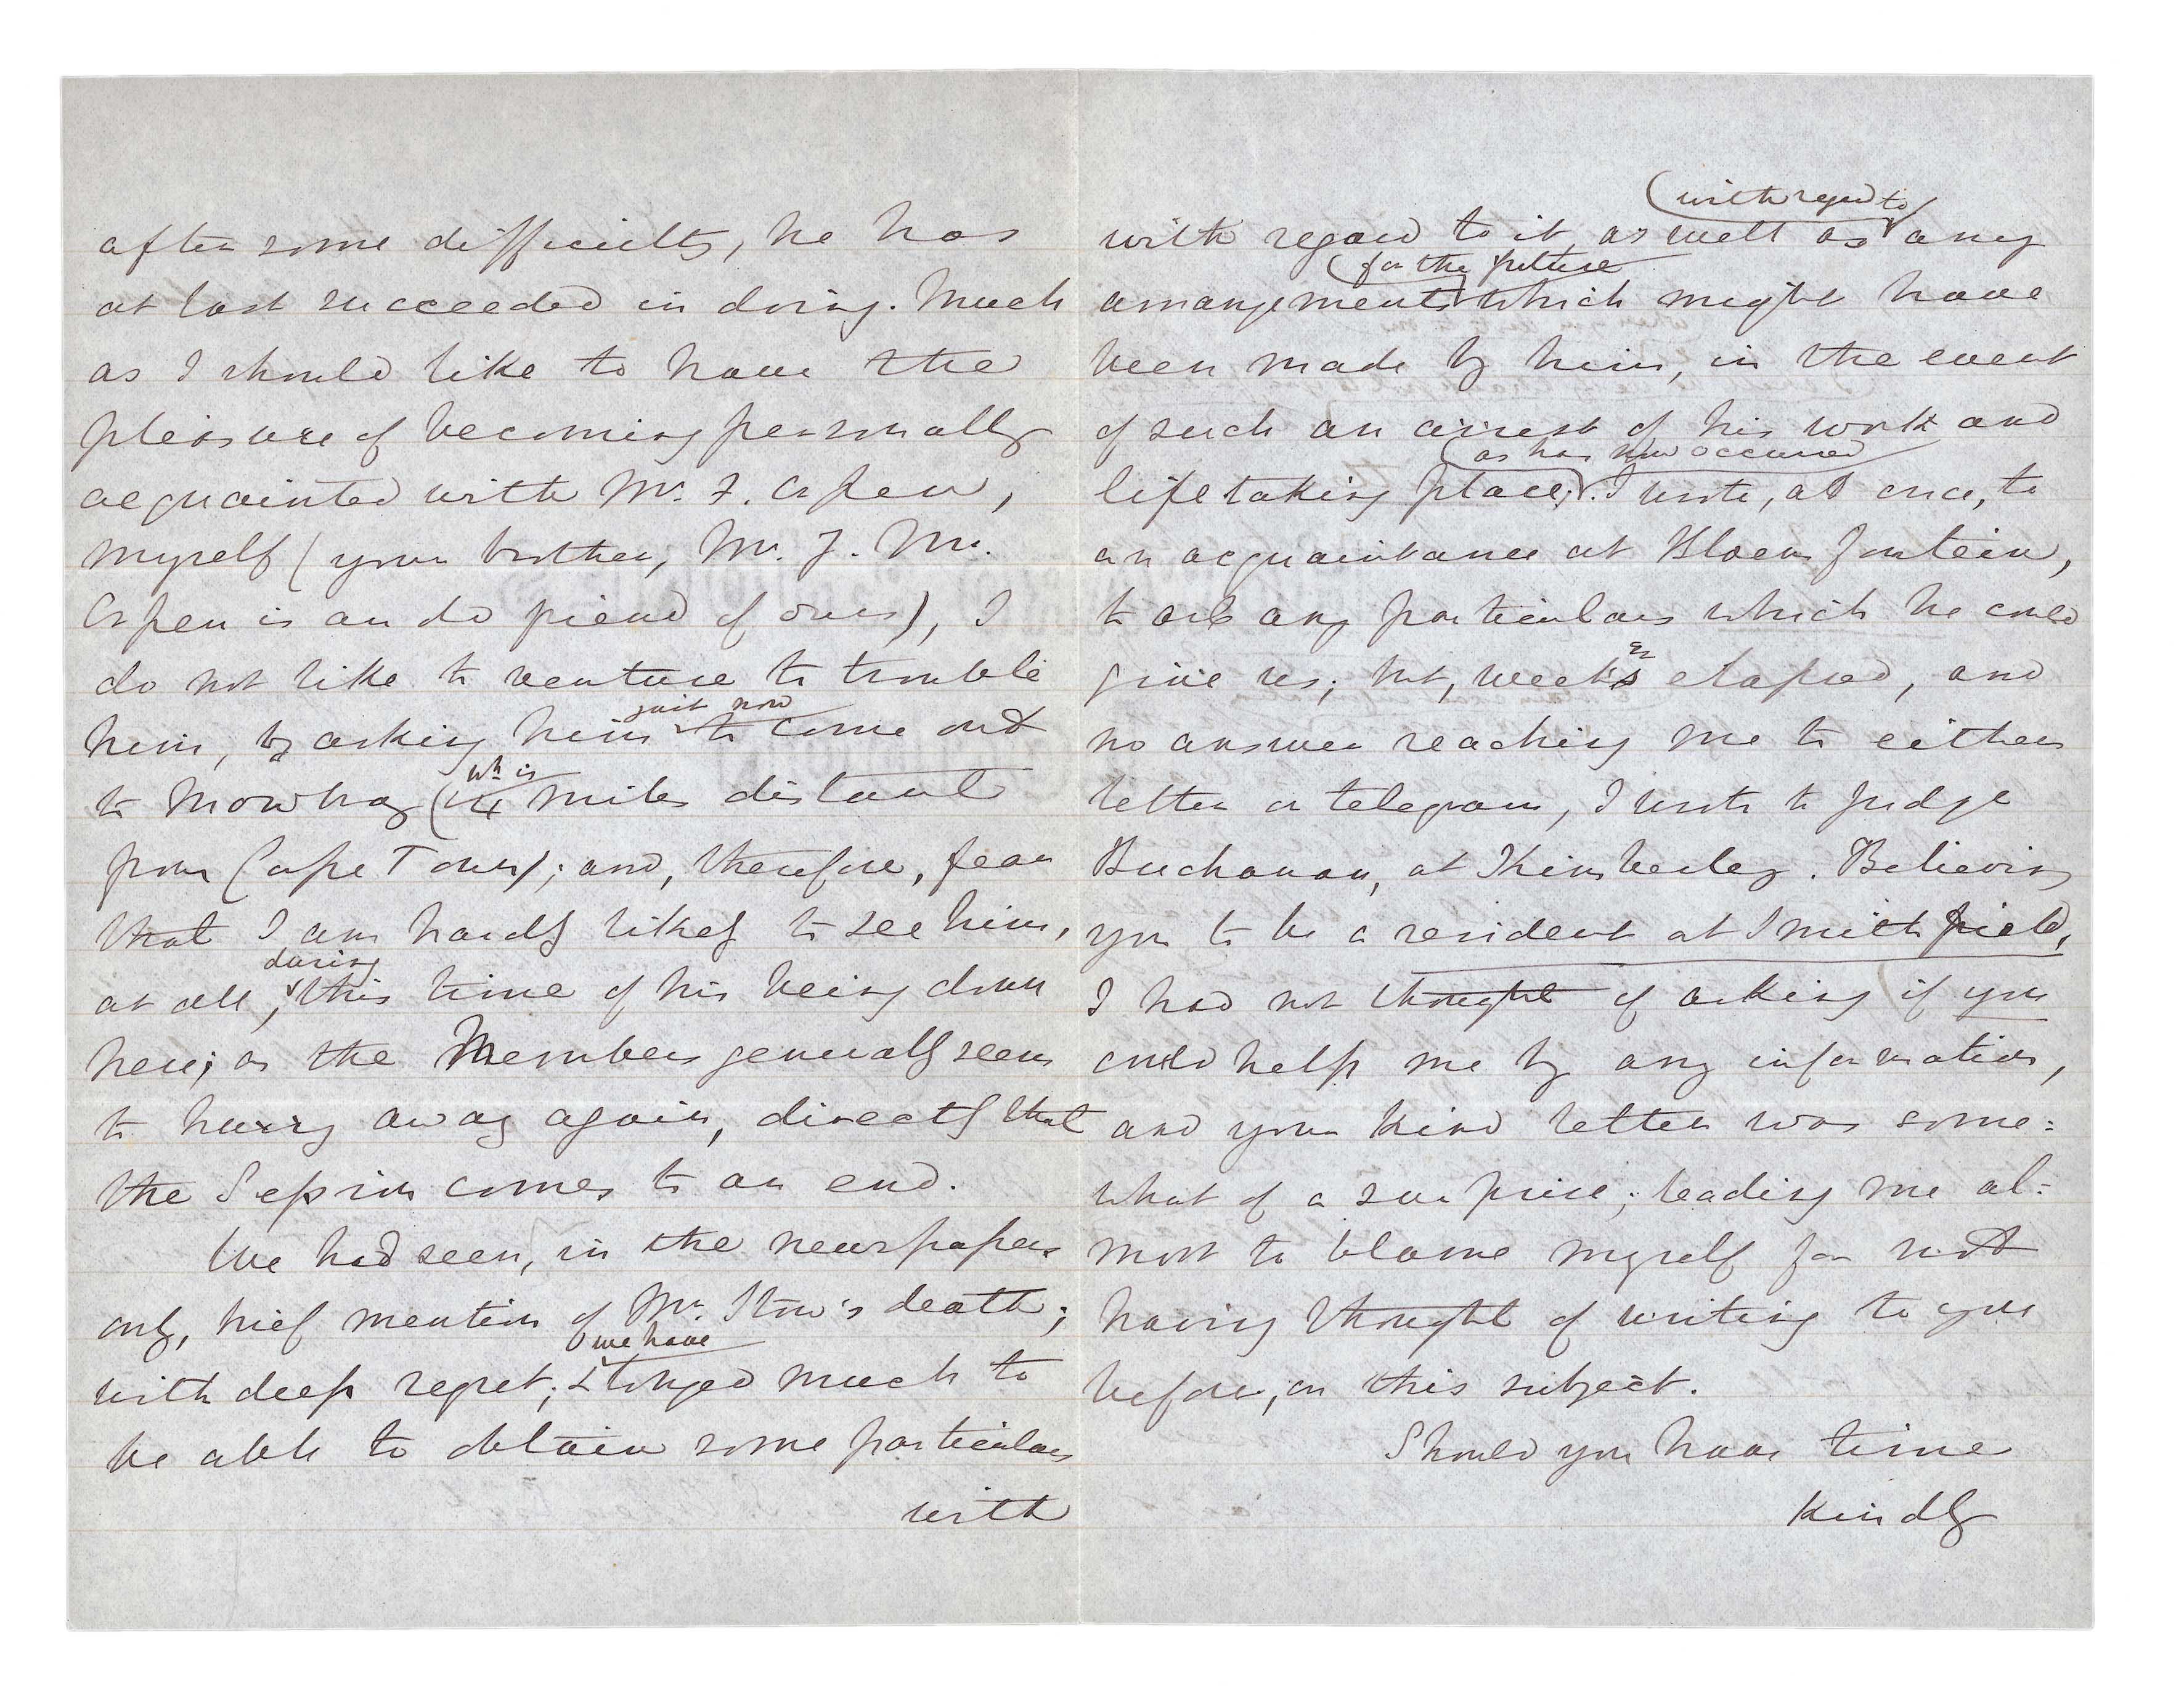 after some difficulty, he has
at last succeeded in doing. Much
as I should like to have the
pleasure of becoming personally
acquainted with Mr. F. Orpen,
myself (your brother, Mr. J. M.
Orpen is an old friend of ours), I
do not like to venture to trouble
just now
him, by asking him to come out
wh. is
to Mowbray (4 miles distant
from Cape Town); and, therefore, fear
that I am hardly likely to see him,
during
at all, this time of his being down
here; as the Members generally seem
to hurry away again, directly that
the Session comes to an end.
We had seen, in the newspapers
only, brief mention of Mr. Stow's death;
we have
with deep regret; & longed much to
be able to obtain some particulars
with
with regard to
with regard to it, as well as any
for the future
arrangements which might have
been made by him, in the event
of such an arrest of his work and
as has now occurred
life taking place. I wrote, at once, to
an acquaintance at Bloemfontein,
to ask any particulars which he could
give us; but, weeks elapsed, and
no answer reaching me to either
letter or telegram, I wrote to Judge
Buchanan, at Kimberley. Believing
you to be a resident at Smithfield,
I had not thought of asking if you
could help me by any information,
and your kind letter was some:
what of a surprise; leading me al:
most to blame myself for not
having thought of writing to you
before, on this subject.
Should you have time
kindly